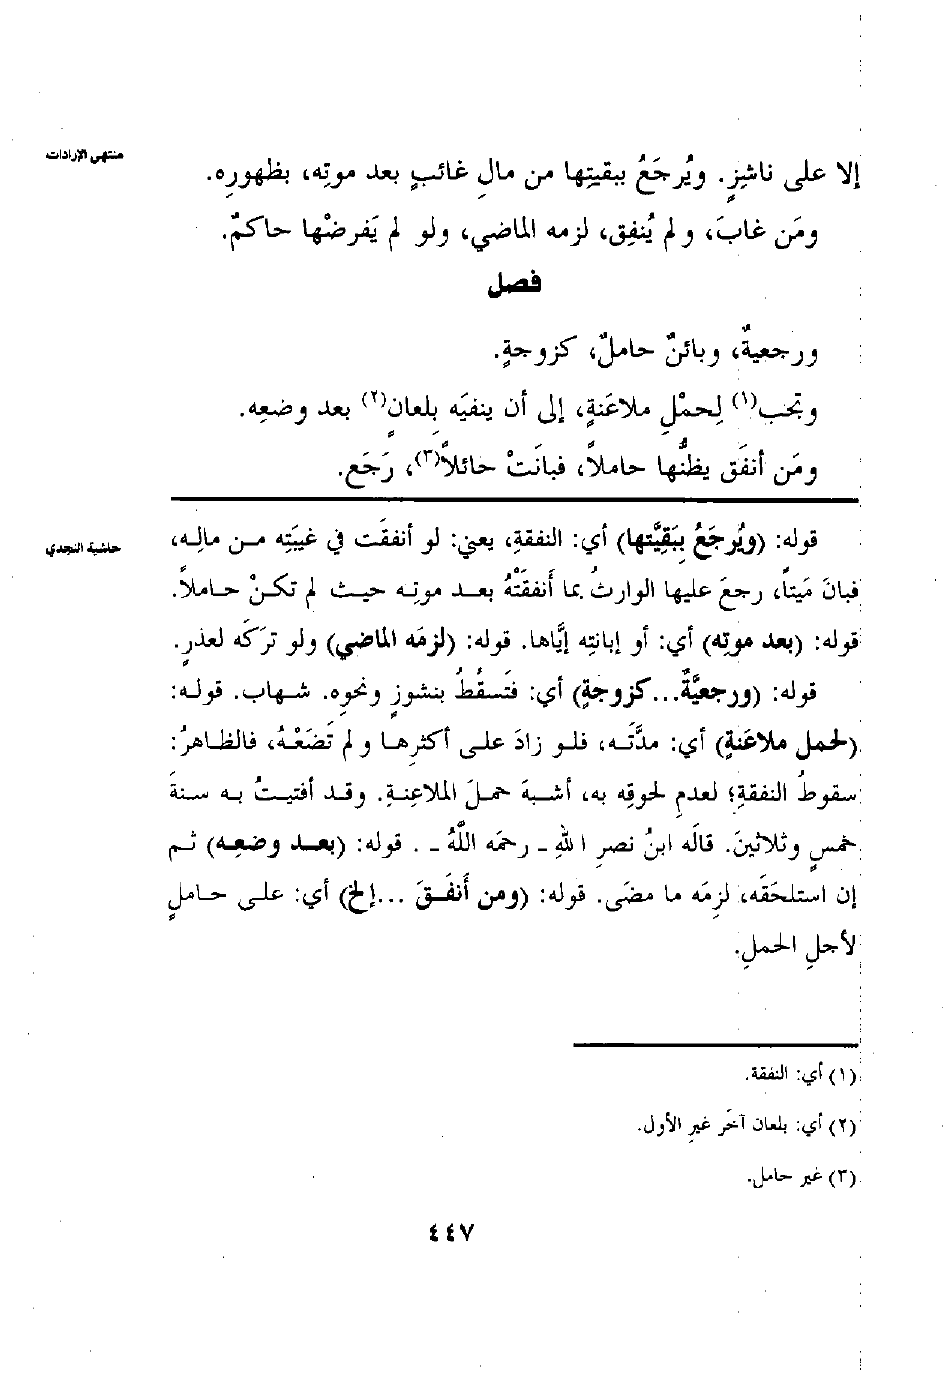 منتهى الإرادات
إلا على ناشِزٍ. ويُرجَعُ ببقيتِها من مالِ غائبٍ بعد موتِه، بظهورِه.
ومَن غابَ، ولم يُنفِق، لزمه الماضي، ولو لم يَفرضْها حاكمٌ.
فصل
ورجعيةٌ، وبائنٌ حاملٌ، كزوجةٍ.
وتجب(١) لِحمْلِ ملاعَنةٍ، إلى أن ينفيَه بِلعانٍ(٢) بعد وضعِه.
ومَن أنفَق يظنُّها حاملاً، فبانَتْ حائلاً(٣)، رَجَع.
حاشية النجدي
قوله: (ويُرجَعُ بِبَقِيَّتها) أي: النفقةِ، يعني: لو أنفقَت في غيبَتِه من مالِه،
فبانَ مَيتاً، رجعَ عليها الوارثُ بما أنفقَتْهُ بعد موتِه حيث لم تكنْ حاملاً.
قوله: (بعد موتِه) أي: أو إبانتِه إيَّاها. قوله: (لزمَه الماضي) ولو تركَه لعذرٍ.
قوله: (ورجعيَّةٌ... كزوجةٍ) أي: فتَسقُطُ بنشوزٍ ونحوِه. شهاب. قوله:
(لحملِ ملاعَنةٍ) أي: مدَّتَه، فلو زادَ على أكثرِها ولم تضَعْهُ، فالظاهرُ:
سقوطُ النفقةِ؛ لعدمِ لحوقِه به، أشبهَ حملَ الملاعِنةِ. وقد أفتيتُ به سنةَ
خمسٍ وثلاثينَ. قالَه ابنُ نصرِ اللهِ - رحمَه اللَّهُ -. قوله: (بعد وضعِه) ثم
إن استلحَقَه، لزِمَه ما مضَى. قوله: (ومن أنفَقَ ...إلخ) أي: على حاملٍ
لأجلِ الحملِ.
(١) أي: النفقة.
(٢) أي: بلعان آخَر غيرِ الأول.
(٣) غير حامل.
٤٤٧